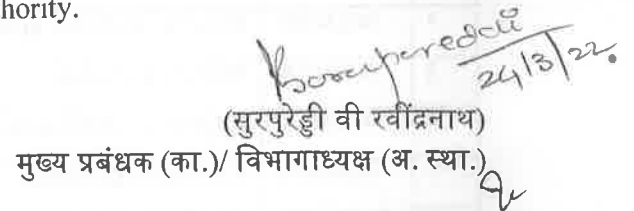 hority.
24/3/22.
(सुरपुरेड्डी वी रवींद्रनाथ)
मुख्य प्रबंधक (का.)/ विभागाध्यक्ष (अ. स्था.)